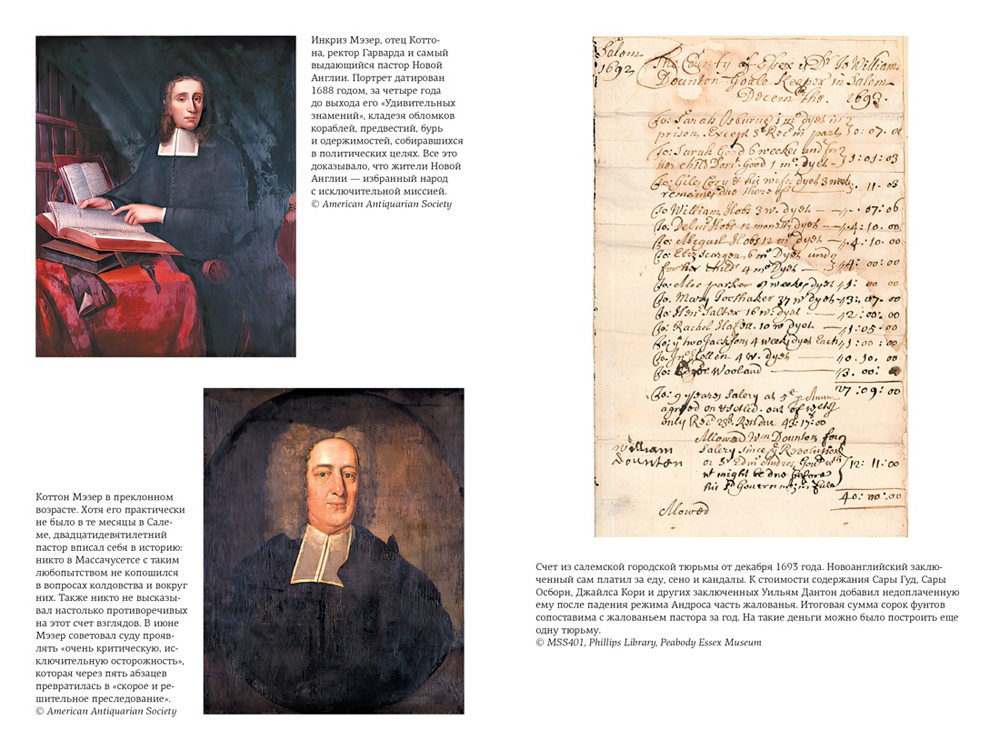 Инкриз Мэзер, отец Котто-
на, ректор Гарварда и самый
выдающийся пастор Новой
Англии. Портрет датирован
1688 годом, за четыре года
до выхода его «Удивительных
знамений», кладезя обломков
кораблей, предвестий, бурь
и одержимостей, собиравшихся
в политических целях. Все это
доказывало, что жители Новой
Англии — избранный народ
с исключительной миссией.
© American Antiquarian Society
Коттон Мэзер в преклонном
возрасте. Хотя его практически
не было в те месяцы в Сале-
ме, двадцатидевятилетний
пастор вписал себя в историю:
никто в Массачусетсе с таким
любопытством не копошился
в вопросах колдовства и вокруг
них. Также никто не высказы-
вал настолько противоречивых
на этот счет взглядов. В июне
Мэзер советовал суду прояв-
лять «очень критическую, ис-
ключительную осторожность»,
которая через пять абзацев
превратилась в «скорое и ре-
шительное преследование».
© American Antiquarian Society
Salem
1692
The County of Essex is Dr To William
Dounton Goale Keeper in Salem
Decem the 1693
To: Sarah Osburne
prison. Except
To: Sarah Good 6 weekes and for
her child Dorit: Good 1 mo dyet 1: 01: 03
To: Giles Cory & his wife dyet 3 week
remaines due thereof 11 03
To William Hobs 3 w. dyet 07: 06
To: Delin Hobs 12 month dyet 4: 10. 00
To: Abigail Hobs 12 mo dyet 4: 10. 00
To: Eliz Scargen 6 mo Dyet and
for her child 4 mo Dyet 4: 00: 00
To: Alic parker weekes dyet 1: 00 00
To: Mary Toothaker 37 w dyet 3: 07. 00
To: Hen: Salter 16 w: dyet 2: 00: 00
To: Rachel Hafell. 10 w dyet 1: 05: 00
To: ye two Jacksons 4 week dyet Each 1: 00: 00
4 w. dyet 0. 10. 00
To: Wooland 3. 00:
27: 09: 00
To: 9 yeares Salery at 5£ p Anum
agreed on & setled. out of
only Rec Rest due 43: 17: 00
Allowed Wm Dounton for
Salery since ye Revolution
or Sr Edm Andros Gour 12: 11: 00
wt might be due before
his
William
Dounton
40: 00: 00
Alowed
Счет из салемской городской тюрьмы от декабря 1693 года. Новоанглийский заклю-
ченный сам платил за еду, сено и кандалы. К стоимости содержания Сары Гуд, Сары
Осборн, Джайлса Кори и других заключенных Уильям Дантон добавил недоплаченную
ему после падения режима Андроса часть жалованья. Итоговая сумма сорок фунтов
сопоставима с жалованьем пастора за год. На такие деньги можно было построить еще
одну тюрьму.
© MSS401, Phillips Library, Peabody Essex Museum